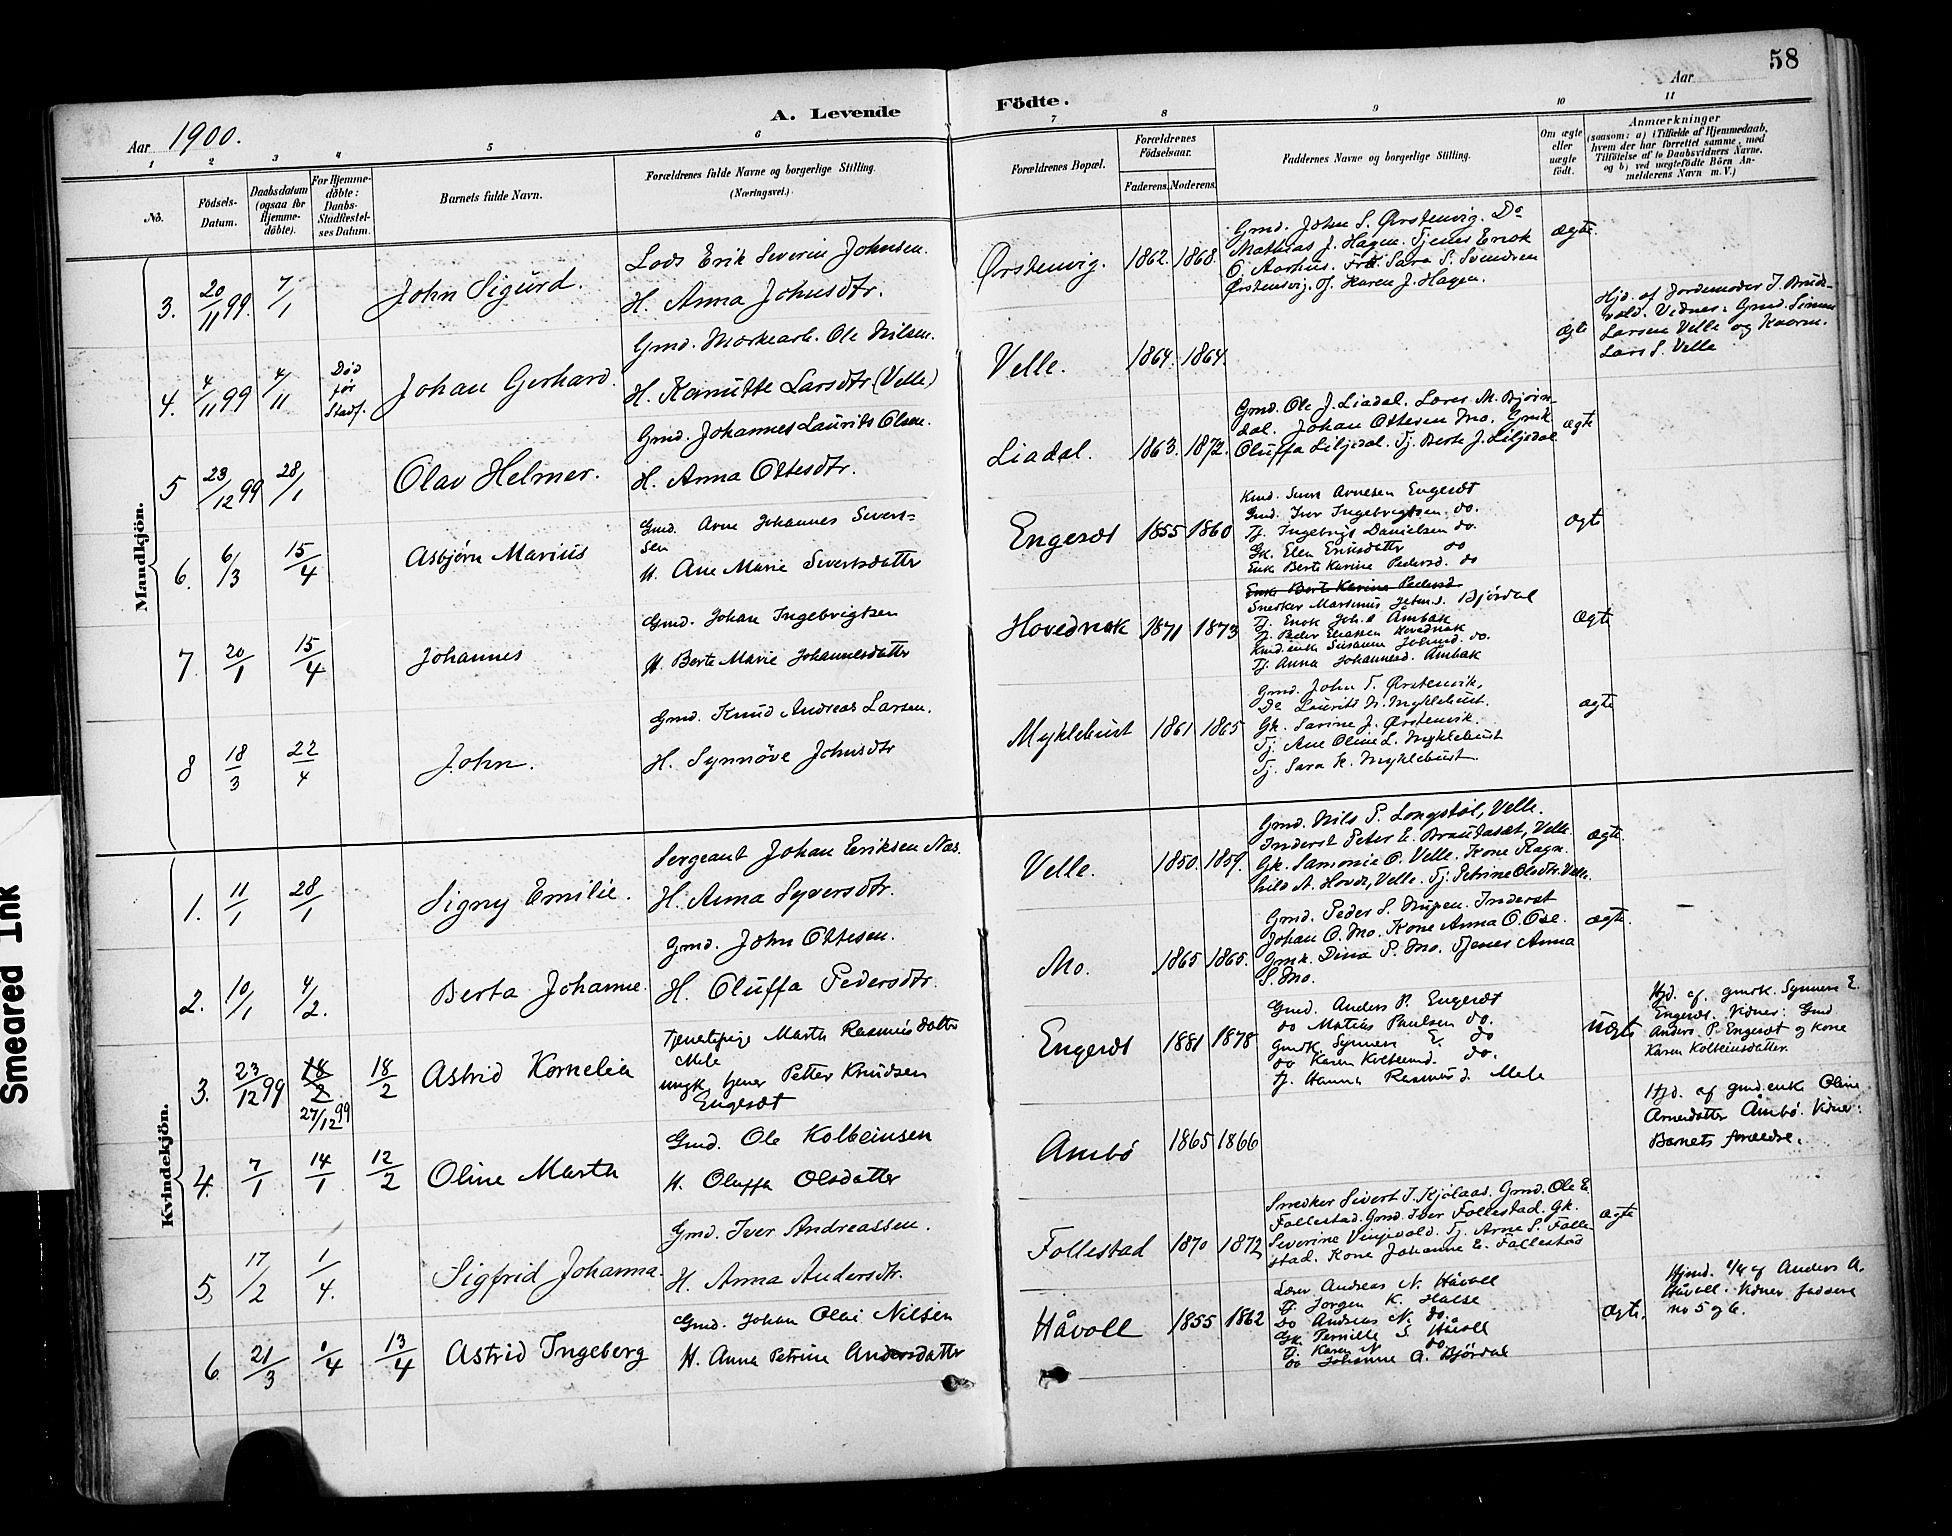 58
Aar 1900.
A. Levende Födte.
Aar
1 2 3 4 5 6 7 8 9 10 11
No.
Födsels-
Datum.
Daabsdatum
(ogsaa for
Hjemme-
döbte).
For Hjemme-
döbte:
Daabs-
Stadfæstel-
ses Datum.
Barnets fulde Navn.
Forældrenes fulde Navne og borgerlige Stilling.
(Næringsvei.)
Forældrenes Bopæl.
Forældrenes
Födselsaar.
Faderens. Moderens.
Faddernes Navne og borgerlige Stilling.
Om ægte
eller
uægte
födt.
Anmærkninger
(saasom: a) i Tilfælde af Hjemmedaab,
hvem der har forrettet samme, med
Tilföielse af to Daabsvidners Navne,
og b) ved uægtefödte Börn An-
melderens Navn m. V.)
Mandkjön.
3. 20/11 99. 7/1 John Sigurd.
Lods Erik Severin Johnsen.
H. Anna Johnsdtr.
Ørstenvig. 1862. 1868.
Gmd. John S. Ørstenvig. Do
Mathias J. Hagen. Tjener Enok
O. Aarhus. Frk. Sara S. Svendsen
Ørstenvig. Tj. Karen J. Hagen.
ægte
4. 4/11 99 4/11 Død
før
Stadf.
Johan Gerhard.
Gmd. Markearb. Ole Nilsen.
H. Kanutte Larsdtr (Velle)
Velle. 1864. 1864.
ægte
Hjd. af Jordemoder J. Brude-
vold. Vidner: Gmd. Simon
Larsen Velle og Kaarm.
Lars S. Velle
5 23/12 99 28/1 Olav Helmer.
Gmd. Johannes Laurits Olsen.
H. Anna Ottesdtr.
Liadal. 1863. 1872.
Gmd. Ole J. Liadal. Lærer M. Bjørn-
dal. Johan Ottesen Mo. Gmk
Oluffa Liljedal. Tj. Berte J. Liljedal
ægte
6. 6/3 15/4 Asbjørn Marius
Gmd. Arne Johannes Sivert-
sen
H. Ane Marie Sivertsdatter
Engesæt 1855 1860
Kmd. Sivert Arnesen Engesæt
Gmd. Iver Ingebrigtsen do.
Tj. Ingebrigt Danielsen do.
Gk. Elen Eriksdatter do
Enk Berte Karine Pedersd. do
ægte
7. 20/1 15/4 Johannes
Gmd. Johan Ingebrigtsen
H. Berte Marie Johannesdatter
Hovednak 1871 1873
Enk Berte Karine Pedersd
Snedker Martinus Jetm.s. Bjørdal
Tj. Enok Joh.s Ambak
Tj. Peder Eliassen Hovednak
Kmd.enk Susanna Johnsd. do.
Tj. Anna Johannesd. Ambak
ægte
8 18/3 22/4 John.
Gmd. Knud Andreas Larsen.
H. Synnöve Johnsdtr
Myklebust 1861 1865
Gmd. John T. Ørstenvik,
Do Laurits N. Myklebust.
Gk. Sarine J. Ørstenvik.
Tj. Ane Oline L. Myklebust
Tj. Sara K. Myklebust.
ægte
Kvindekjön.
1. 11/1 28/1 Signy Emilie.
Sergeant Johan Eriksen Næs.
H. Anna Syversdtr.
Velle. 1850. 1859.
Gmd. Nils P. Longstøl, Velle.
Inderst Peter E. Brautaset, Velle.
Gk. Samonie O. Velle. Kone Ragn-
hild A. Hovde, Velle. Tj. Petrine Olsdtr. Velle.
ægte
2. 10/1 4/2. Berta Johanne.
Gmd. John Ottesen.
H. Oluffa Pedersdtr.
Mo. 1865 1865.
Gmd. Peder S. Nupen. Inderst
Johan O. Mo. Kone Anna O. Ose.
Gmk. Dina P. Mo. Tjener Anna
S. Mo.
ægte.
3. 23/12 99 18/2
27/12 99
18/2 Astrid Kornelia
Tjenestepige Marta Rasmusdatter
Mele
ungk. tjener Petter Knudsen
Engesæt
Engesæt 1881 1878
Gmd. Anders P. Engesæt
do Matias Paulsen do.
Gmdk Synnøve E. do
do Karen Kolbeinsd. do.
Tj. Hanna Rasmusd. Mele
uægte
Hjd. af. gmdk. Synnøve E.
Engesæt. Vidner: Gmd
Anders P. Engesæt og kone
Karen Kolbeinsdatter.
4. 7/1 14/1 12/2 Oline Marta
Gmd. Ole Kolbeinsen
H. Oluffa Olsdatter
Ambø 1865 1866
Hjd. af gmd.enke Oline
Arnesdatter Åmbø. Vidner:
Barnets forældre.
5, 17/2 1/4. Sigfrid Johanna.
Gmd. Iver Andreassen.
H. Anna Andersdtr.
Follestad 1870 1872
Snedker Sivert I. Kjølaas. Gmd. Ole E.
Follestad. Gmd. Iver Follestad. Gk.
Severine Vinjevold. Tj. Arne S. Folle-
stad. Kone Johanne E. Follestad
ægte
6. 21/3 1/4 13/4 Astrid Ingeberg
Gmd. Johan Olai Nilsen
H. Anna Petrine Andersdatter
Håvoll 1855 1862
Lærer Andreas N. Håvoll
Tj. Jørgen K. Halse
Do Andreas N. do.
Gk Pernille S Håvoll
Tj. Karen N do
do Johanne A. Bjørdal
ægte.
Hjmd. 1/4 af Anders A.
Håvoll. Vidner faddere
no 5 og 6.
Smeared Ink